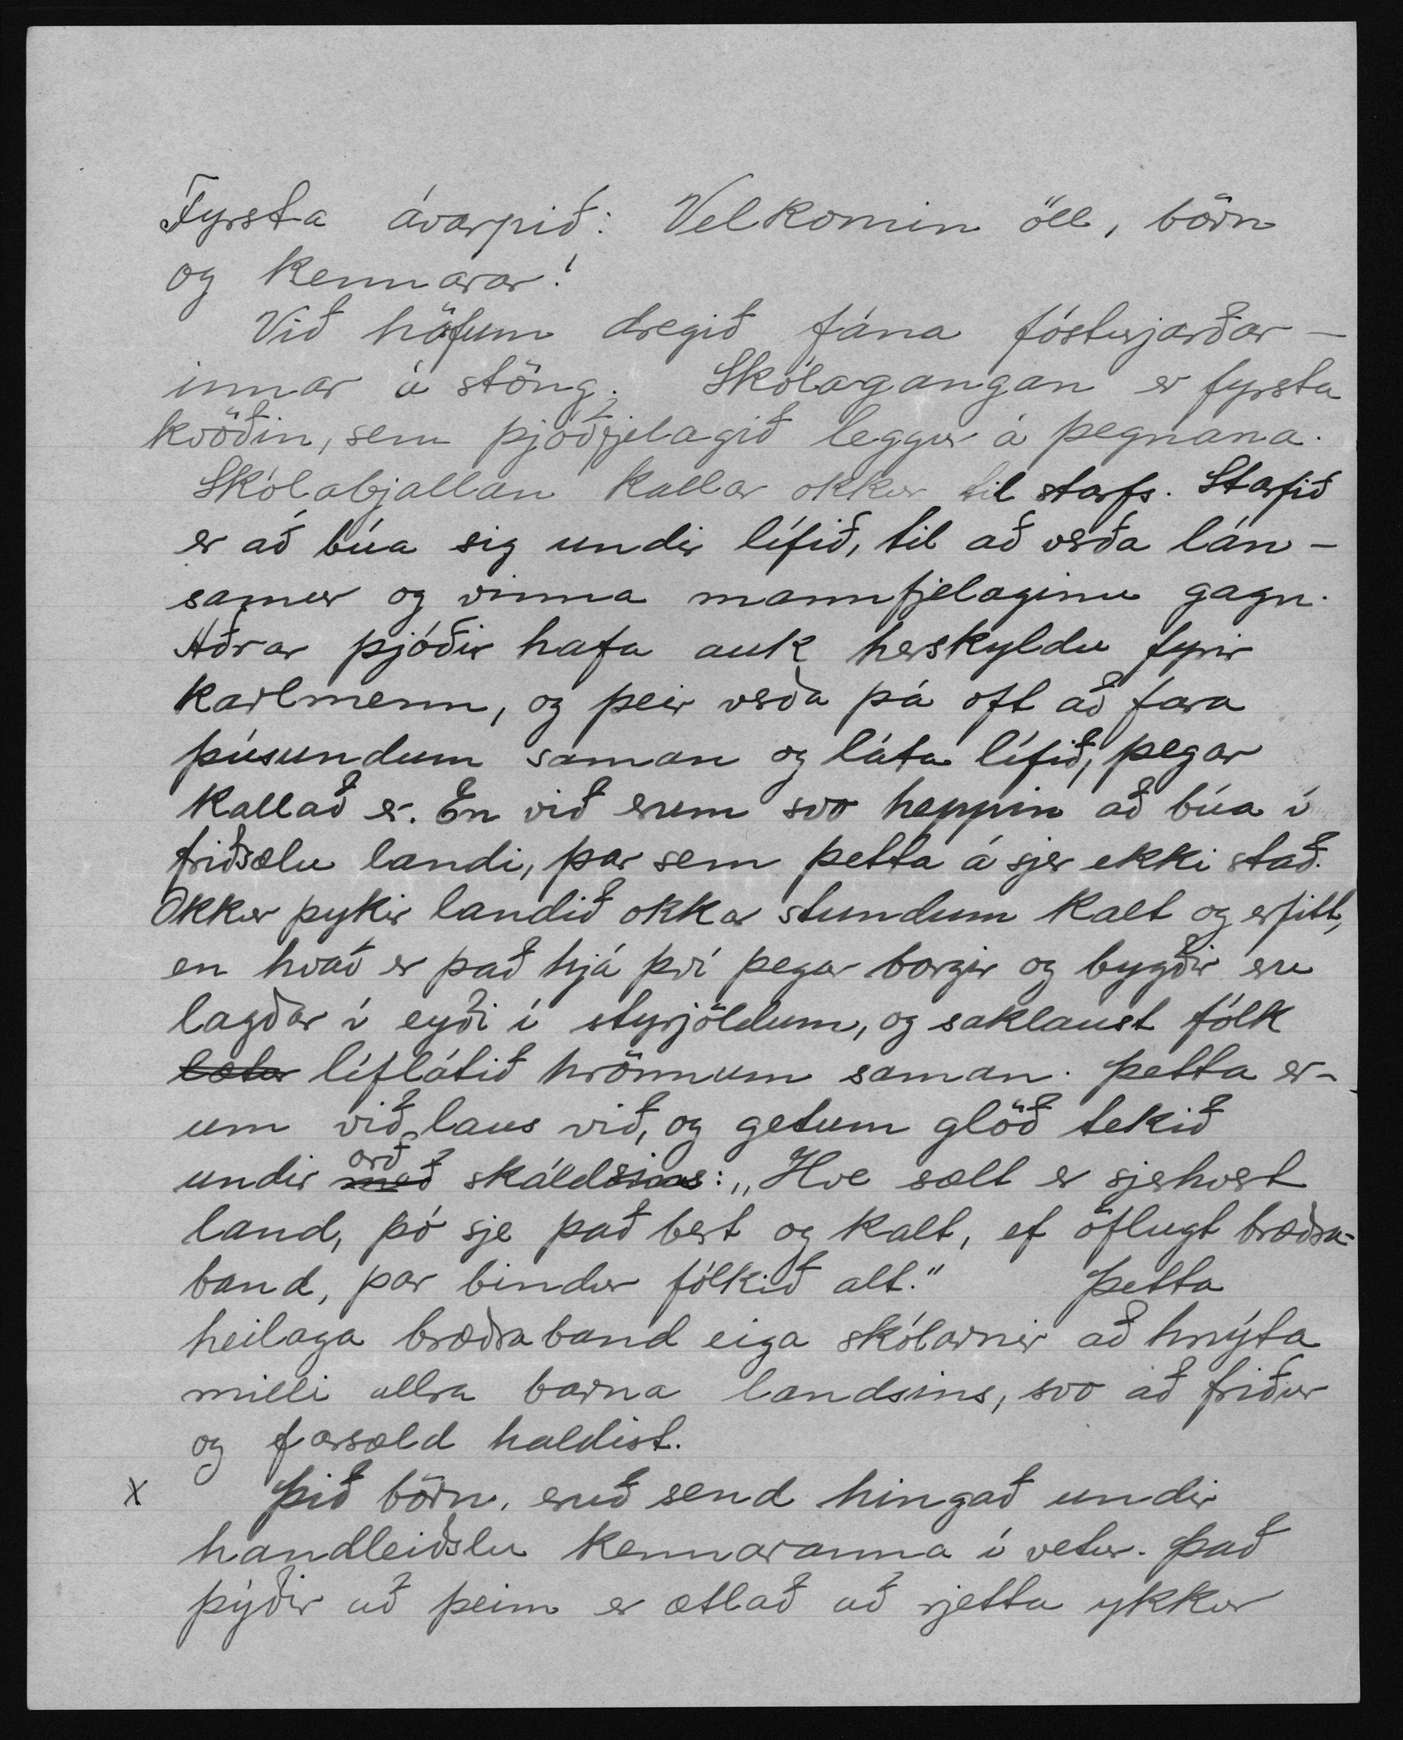 Fyrsta ávarpið: Velkomin öll, börn
og kennarar!
Við höfum dregið fána fósturjarðar-
innar á stöng. Skólagangan er fyrsta
kvöðin, sem þjóðfjelagið leggur á þegnana.
Skólabjallan kallar okkur til starfs. Starfið
er að búa sig undir lífið, til að verða lán-
samur og vinna mannfjelaginu gagn.
Aðrar þjóðir hafa auk herskyldu fyrir
karlmenn, og þeir verða þá oft að fara
þúsundum saman og láta lífið, þegar
kallað er. En við erum svo heppin að búa í
friðsælu landi, þar sem þetta á sjer ekki stað.
Okkur þykir landið okkar stundum kalt og erfitt,
en hvað er það hjá því þegar borgir og bygðir eru
lagðar í eyði í styrjöldum, og saklaust fólk
lætur líflátið hrönnum saman. Þetta er-
um við laus við, og getum glöð tekið
orð
undir með skáldsins: „Hve sælt er sjerhvert
land, þó sje það bert og kalt, ef öflugt bræðra-
band, þar bindur fólkið alt.“ Þetta
heilaga bræðraband eiga skólarnir að hnýta
milli allra barna landsins, svo að friður
og farsæld haldist.
x Þið börn, eruð send hingað undir
handleiðslu kennaranna í vetur. Það
þýðir að þeim er ætlað að rjetta ykkur